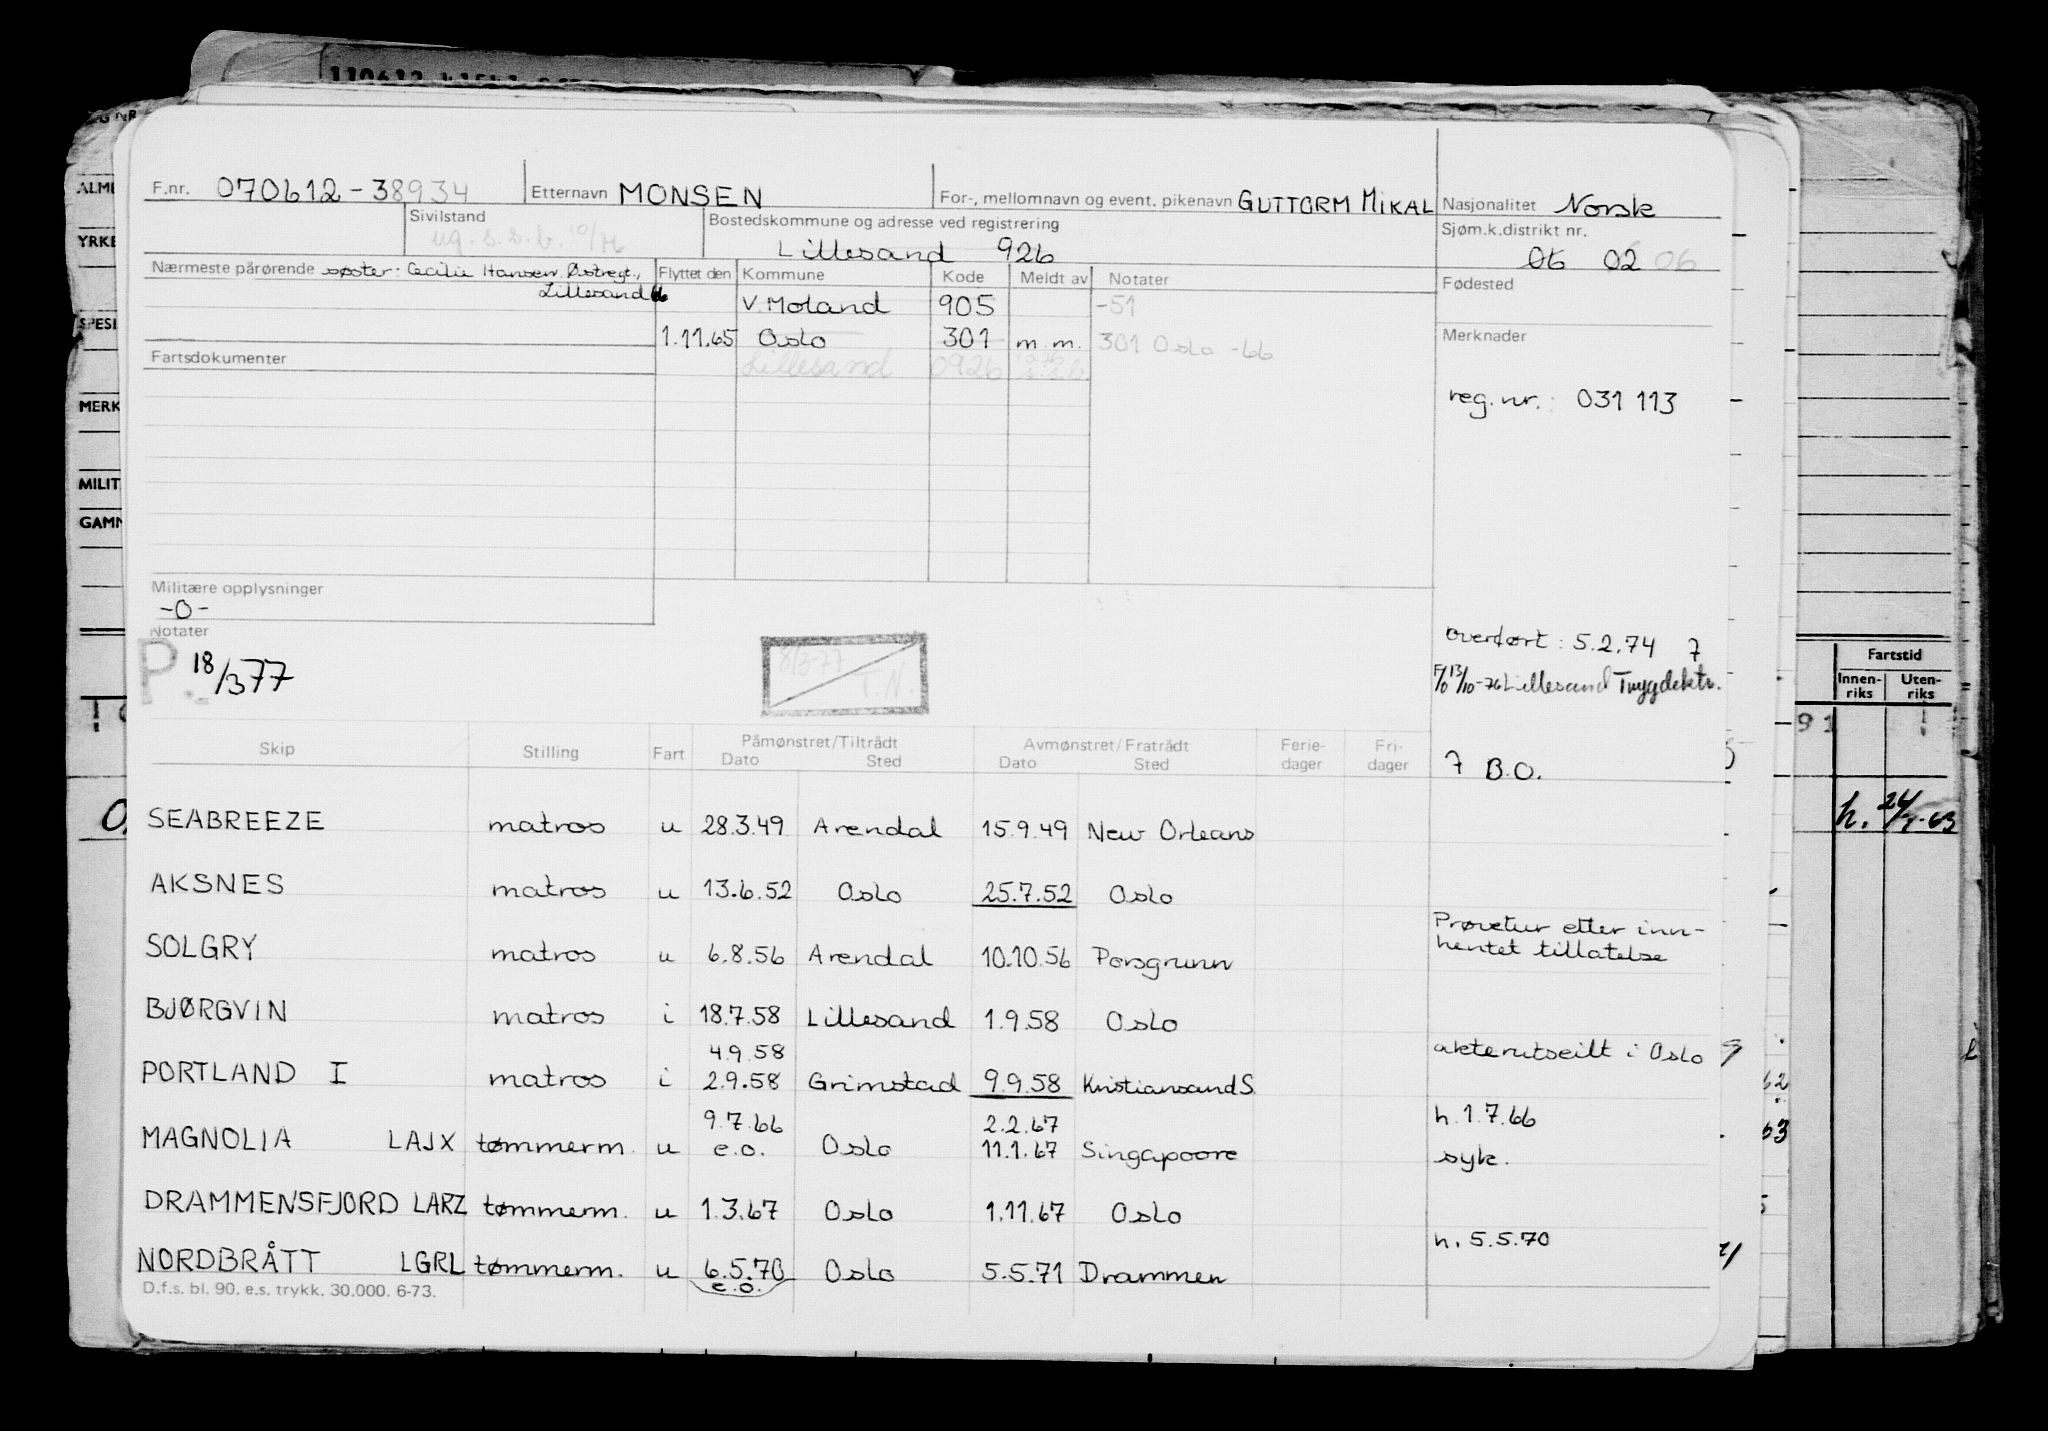 F.nr. 070612-38934 Etternavn MONSEN For-, mellomnavn og event. pikenavn GUTTORM MIKAL Nasjonalitet Norsk
Sivilstand ug. s.s.b. 10/76 Bostedskommune og adresse ved registrering Lillesand 926 Sjøm.k.distrikt nr. 06 02 06
Nærmeste pårørende søster: Cecilie Hansen, Østregt., Lillesand
Flyttet den Kommune Kode Meldt av Notater Fødested
V. Moland 905 -51
1.11.65 Oslo 301 m.m. 301 Oslo -66 Merknader
Fartsdokumenter Lillesand 0926
reg.nr.: 031 113
Militære opplysninger
-0-
Notater
P. 18/3 77
8/3-77
T.N.
overført: 5.2.74 7
13/10-76 Lillesand Trygdektr.
7 B.O.
Skip Stilling Fart Påmønstret/Tiltrådt Dato Sted Avmønstret/Fratrådt Dato Sted Ferie-dager Fri-dager
SEABREEZE matros u 28.3.49 Arendal 15.9.49 New Orleans
AKSNES matros u 13.6.52 Oslo 25.7.52 Oslo
SOLGRY matros u 6.8.56 Arendal 10.10.56 Porsgrunn Prøvetur etter inn-
hentet tillatelse
BJØRGVIN matros i 18.7.58 Lillesand 1.9.58 Oslo
4.9.58 akterutseilt i Oslo
PORTLAND I matros i 2.9.58 Grimstad 9.9.58 Kristiansand S.
9.7.66 2.2.67 h. 1.7.66
MAGNOLIA LAJX tømmerm. u e.o. Oslo 11.1.67 Singapoore syk.
DRAMMENSFJORD LARZ tømmerm. u 1.3.67 Oslo 1.11.67 Oslo
h. 5.5.70
NORDBRÅTT LGRL tømmerm. u 6.5.70 Oslo 5.5.71 Drammen
e.o.
D.f.s. bl. 90. e.s. trykk. 30.000. 6-73.
YRKE
MERK
MILIT
Fartstid
Innen-riks Uten-riks
91